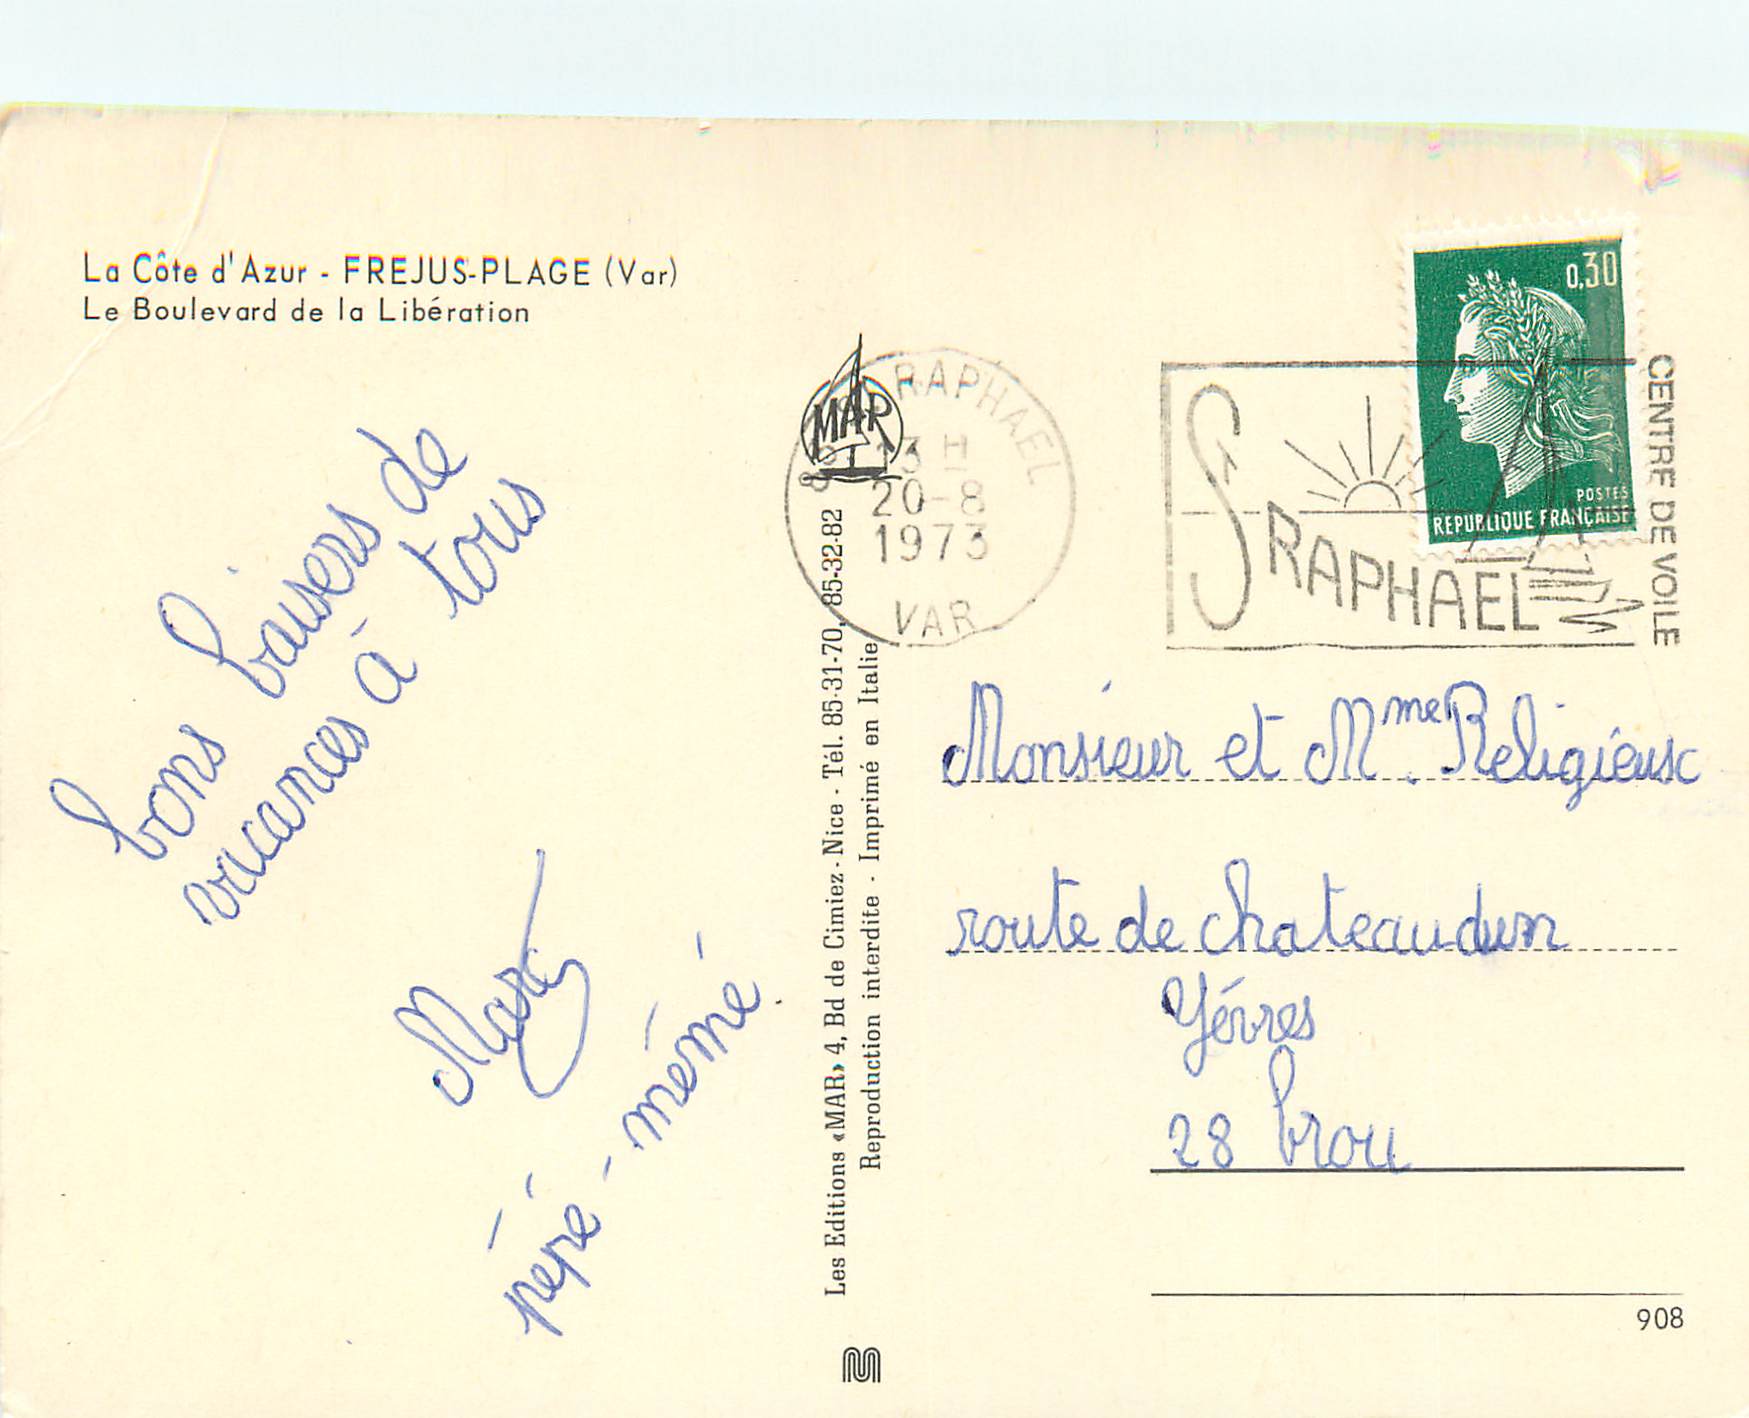 La Côte d'Azur - FREJUS-PLAGE (Var)
Le Boulevard de la Libération
bons baisers de
vacances à tous
Marc
pépé - mémé
MAR
Les Editions «MAR» 4, Bd de Cimiez - Nice - Tél. 85-31-70, 85-32-82
Reproduction interdite - Imprimé en Italie
RAPHAEL
13 H
20-8
1973
VAR
ST RAPHAEL
CENTRE DE VOILE
0,30
POSTES
REPUBLIQUE FRANÇAISE
Monsieur et Mme Religieuse
route de chateaudun
Yévres
28 brou
908